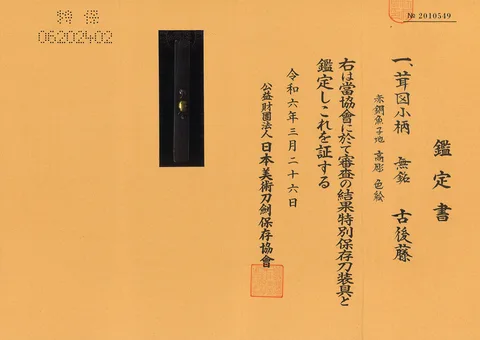 鑑定書
一、茸図小柄 無銘 古後藤
赤銅魚子地 高彫 色絵
右は當協會に於て審査の結果特別保存刀装具と
鑑定しこれを証する
令和六年三月二十六日
公益財團法人 日本美術刀劍保存協會
№ 2010549
特保
06202402